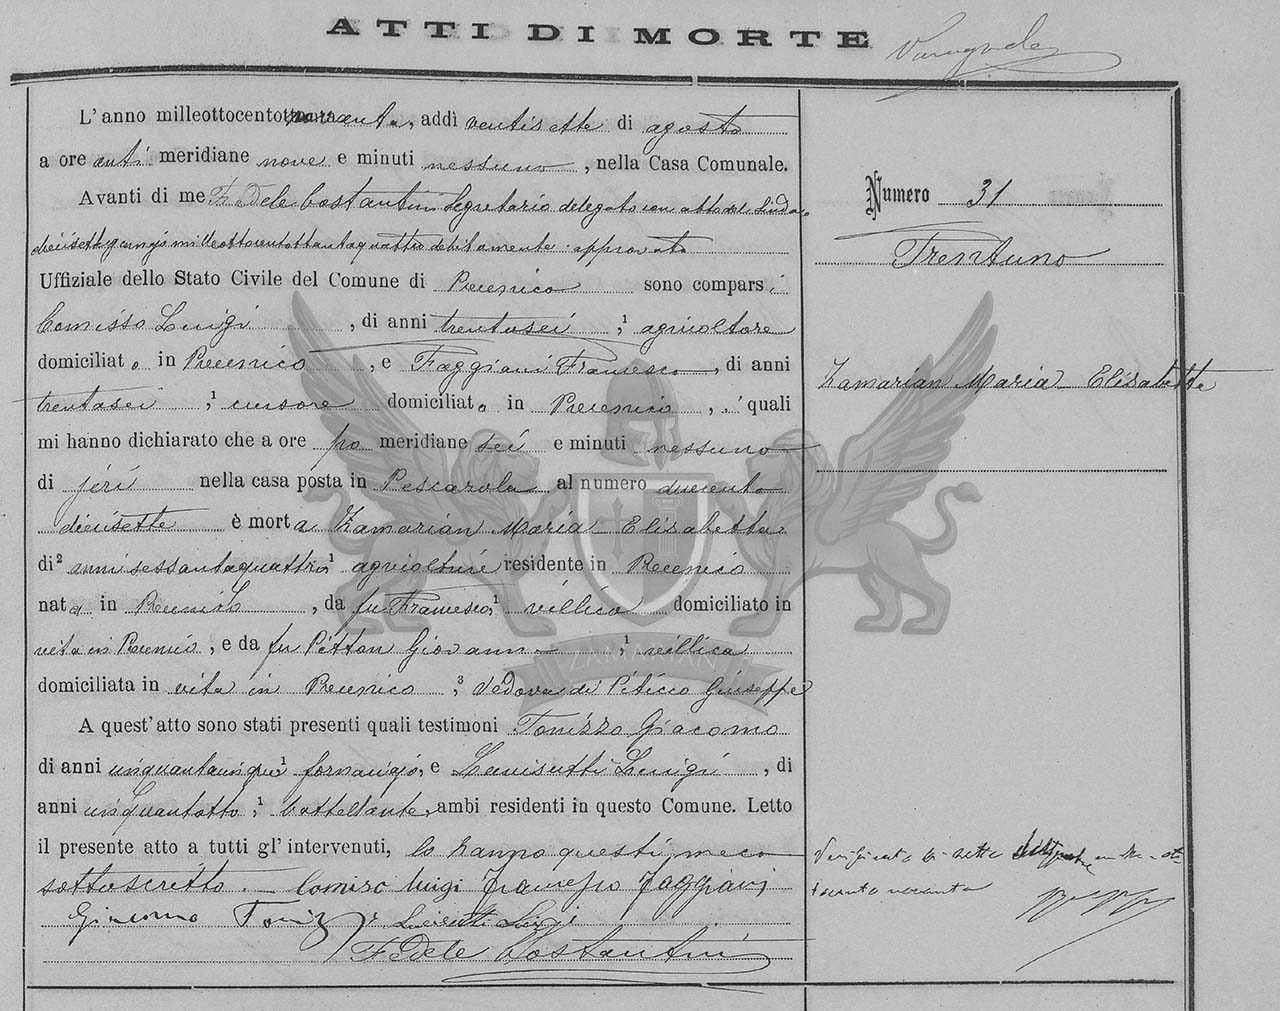 ATTI DI MORTE
L'anno milleottocentonovanta, addì ventisette di agosto
a ore anti meridiane nove e minuti nessuno, nella Casa Comunale.
Avanti di me Fedele Costantini Segretario delegato con atto del Sindaco
diecisette giugno milleottocentottantaquattro debitamente approvato
Uffiziale dello Stato Civile del Comune di Precenico sono comparsi
Comisso Luigi, di anni trentasei,¹ agricoltore
domiciliato in Precenico, e Faggiani Francesco, di anni
trentasei,¹ cursore domiciliato in Precenico, i quali
mi hanno dichiarato che a ore po meridiane sei e minuti nessuno
di jeri nella casa posta in Pescarola al numero duecento
diecisette è morta Zamarian Maria Elisabetta
di² anni sessantaquattro,¹ agricoltrice residente in Precenico
nata in Precenico, da fu Francesco,¹ villico domiciliato in
vita in Precenico, e da fu Pitton Giovanna,¹ villica
domiciliata in vita in Precenico,³ Vedova di Piticco Giuseppe
A quest'atto sono stati presenti quali testimoni Tonizzo Giacomo
di anni cinquantacinque¹ fornaciajo, e Lenisutti Luigi, di
anni cinquantotto,¹ battellante, ambi residenti in questo Comune. Letto
il presente atto a tutti gl'intervenuti, lo hanno questi meco
sottoscritto. Comiso Luigi Francesco Faggiani
Giacomo Toniz Luigi
Fedele Costantini
Numero 31
Trentuno
Zamarian Maria Elisabetta
Verificato li sette
cento novanta
ZAMARIAN